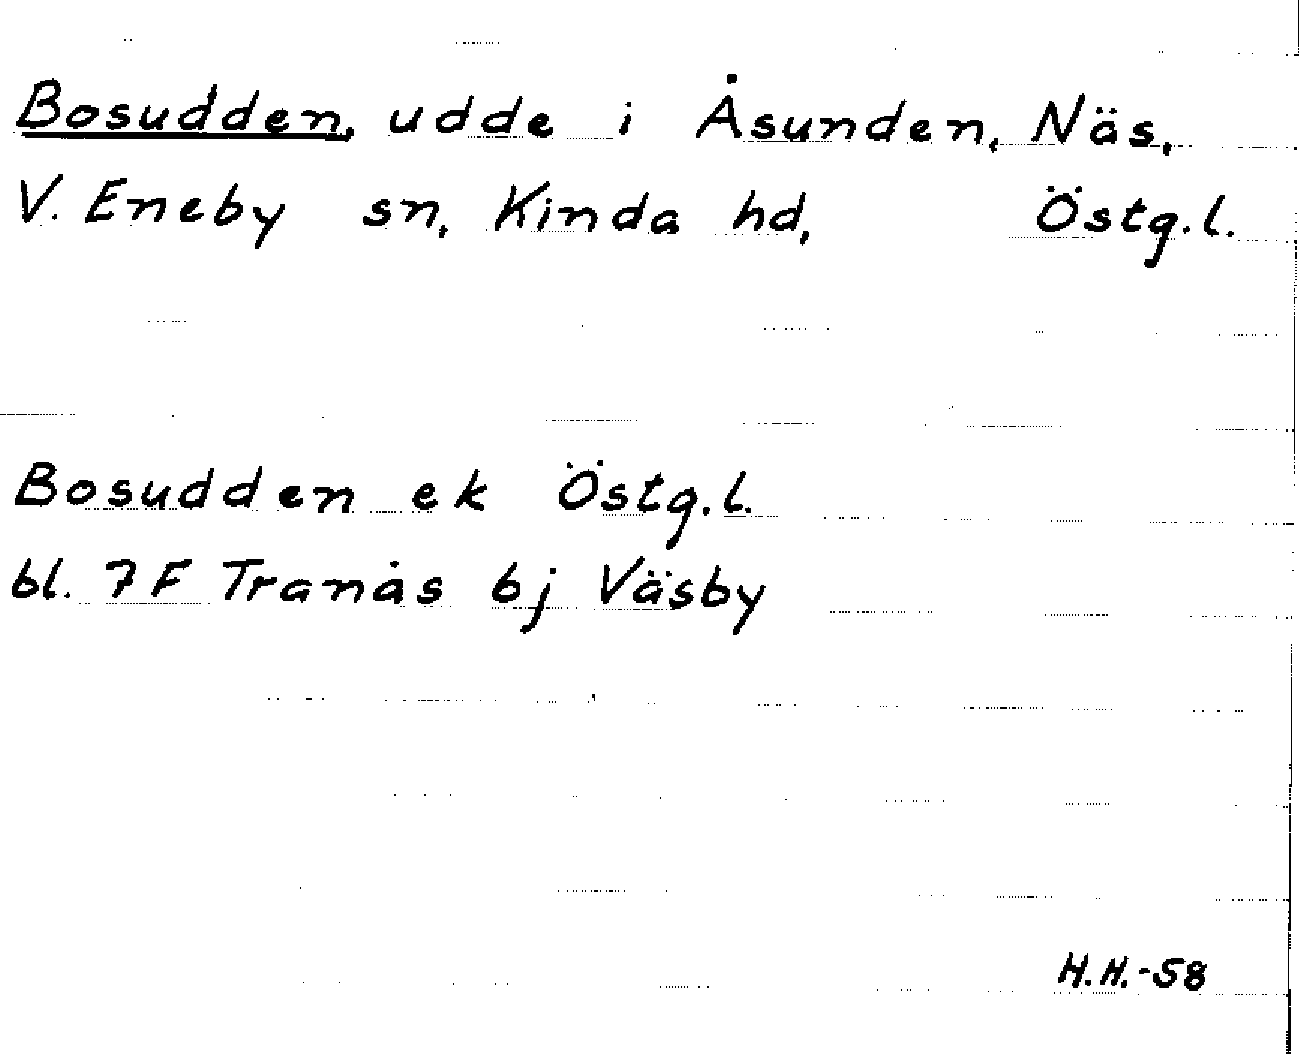 Bosudden, udde i Åsunden, Näs,
V. Eneby sn, Kinda hd, Östg.l.
Bosudden ek Östg.l.
bl. 7F Tranås bj Väsby
H.H.-58